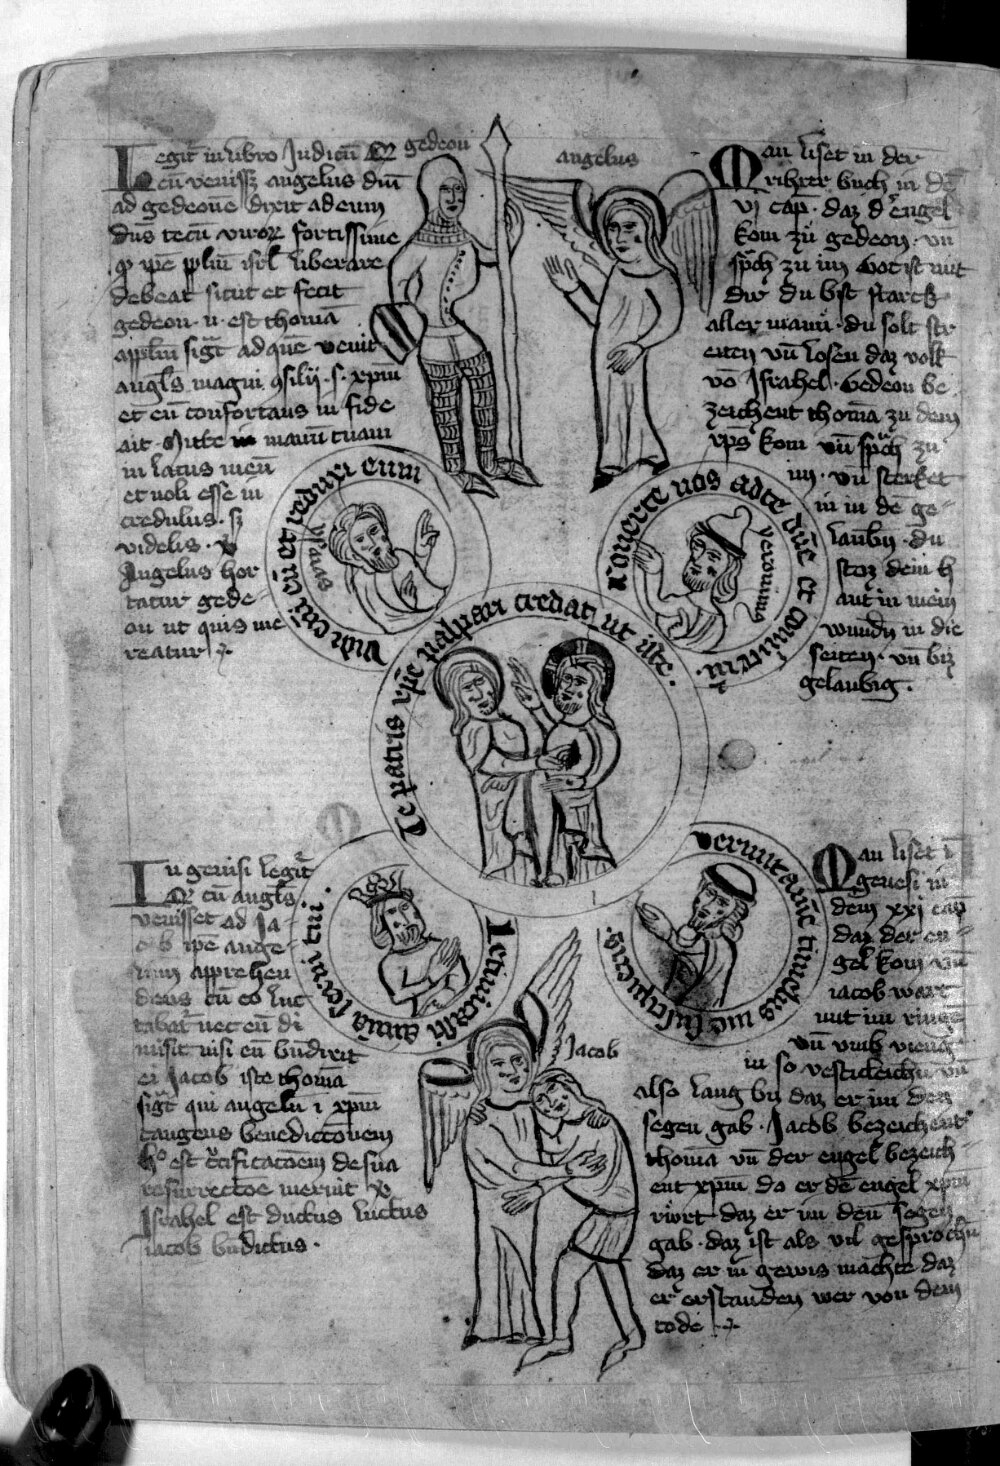 Legit̄ in libro Judicū Q
cū venissȝ angelus dn̄i
ad gedeone dixit ad eum
dn̄s tecū viroꝝ fortissime
ꝙ ip̄e pplm̄ isrl̄ liberare
debeat sicut et fecit
gedeon · n · est thomā
appl̄m sigt̄ ad quē venit
angl̄s magni ꝯsilij · s · xpm̄
et eū confortans in fide
ait · Mitte manū tuam
in latus meū
et noli esse in
credulus · sȝ
videlis · v̄
Angelus hor
tatur gede
on ut quis me
reatur
gedeon
angelus
Man liset in der
rihter buch in dē
vj cap̄ · daz d̄ engel
kom zů gedeon · vn̄
sp̄ch zu im Got ist mit
dir du bist starck
aller mann̄ · du solt str
eiten vn̄ losen daz volk
vō Israhel · Gedeon be
zeichent thomā zu dem
xp̄s kom vn̄ sp̄ch zu
im · vn̄ sterket
in in dē ge
laubn̄ · du
stoz dein h
ant in mein
wundn̄ in die
seiten · vn̄ biz
gelaubig ·
Vidi eni eū et reduxi eum
ysaias
Converte nos ad te dn̄e et
Yeronimus
Te patris xp̄e palpari credat ut iste ·
In genisi legit̄
Q cū angl̄s
venisset ad Ja
cob ip̄e ange
lum apprehen
dens cū eo luc
tabat̄ nec eū di
misit nisi eū bn̄dixit
ei Jacob iste thomā
sigt̄ qui angelū i xpm̄
tangens benedicc̄onem
h̊ est c̄tificac̄oem de sua
resurrectōe meruit v̄
Israhel est dictus luctus
iacob bn̄dictus ·
Letificasti
servi tui ·
Venit
me
Jacob
Man liset ī
genesi in
dem xxj cap̄
daz der en
gel kom vn̄
iacob wart
mit im ringē
vn̄
in so vesticleichn̄ vn̄
also lang bij daz er im den
segen gab · Jacob bezeichent
thomā vn̄ der engel bezeich
ent xpm̄ do er dē engel xpm̄
růrt daz er im den segen
gab · daz ist als vil gesprochn̄
daz er in gewis machte daz
er erstanden wer von dem
tode